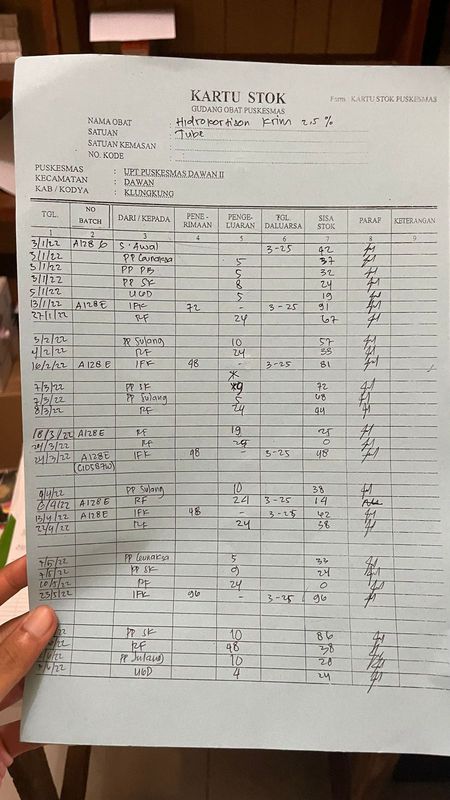 KARTU STOK
Form : KARTU STOK PUSKESMAS
GUDANG OBAT PUSKESMAS
NAMA OBAT : Hidrokortison Krim 2,5 %
SATUAN : Tube
SATUAN KEMASAN :
NO. KODE :
PUSKESMAS : UPT PUSKESMAS DAWAN II
KECAMATAN : DAWAN
KAB / KODYA : KLUNGKUNG
TGL. NO BATCH DARI / KEPADA PENE - RIMAAN PENGE- LUARAN TGL DALUARSA SISA STOK PARAF KETERANGAN
1 2 3 4 5 6 7 8 9
3/1/22 A128 S. Awal 3-25 42
3/1/22 PP Gunaksa 5 37
3/1/22 PP PB 5 32
3/1/22 PP SK 8 24
5/1/22 UGD 5 19
13/1/22 A128 E IFK 72 - 3-25 91
27/1/22 RF 24 67
3/2/22 PP Sulang 10 57
4/2/22 RF 24 33
16/2/22 A128 E IFK 48 - 3-25 81
7/3/22 PP SK 72
7/3/22 PP Sulang 5
8/3/22 RF 24 44
18/3/22 A128E RF 19 25
24/3/22 RF 0
24/3/22 A128E IFK 48 - 3-25 48
(C10587W)
PP Sulang 10 38
A128E RF 24 3-25 14
13/4/22 A128E IFK 48 - 3-25 62
22/4/22 RF 24 38
PP Gunaksa 5 33
7/5/22 PP SK 9 24
10/5/22 RF 24 0
23/5/22 IFK 96 - 3-25 96
/22 PP SK 10 86
/22 RF 48 38
/22 PP Sulang 10 28
/22 UGD 4 24